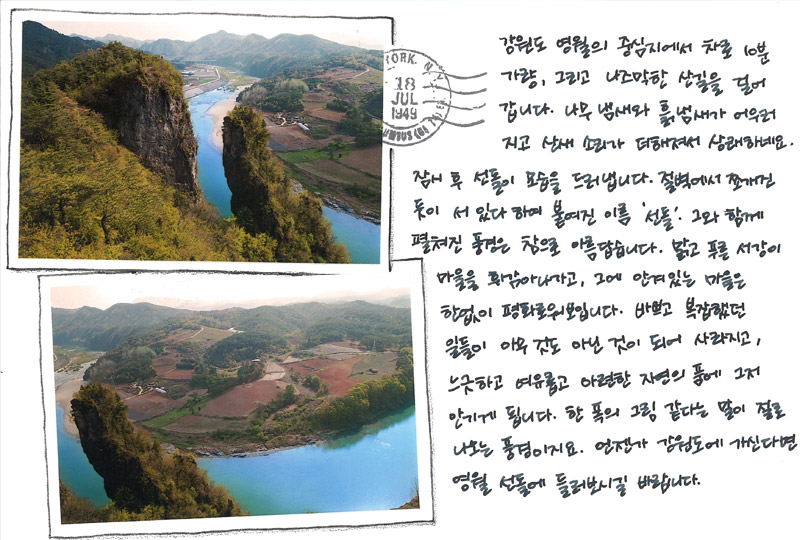 YORK, N.Y.
18
JUL
1949
강원도 영월의 중심지에서 차로 10분
가량, 그리고 나즈막한 산길을 걸어
갑니다. 나무 냄새와 흙냄새가 어우러
지고 산새 소리가 더해져서 상쾌하네요.
잠시 후 선돌이 모습을 드러냅니다. 절벽에서 쪼개진
돌이 서 있다 하여 붙여진 이름 '선돌'. 그와 함께
펼쳐진 풍경은 참으로 아름답습니다. 맑고 푸른 서강이
마을을 휘감아나가고, 그에 안겨있는 마을은
한없이 평화로워보입니다. 바쁘고 복잡했던
일들이 아무 것도 아닌 것이 되어 사라지고,
느긋하고 여유롭고 아련한 자연의 품에 그저
안기게 됩니다. 한 폭의 그림 같다는 말이 절로
나오는 풍경이지요. 언젠가 강원도에 가신다면
영월 선돌에 들러보시길 바랍니다.